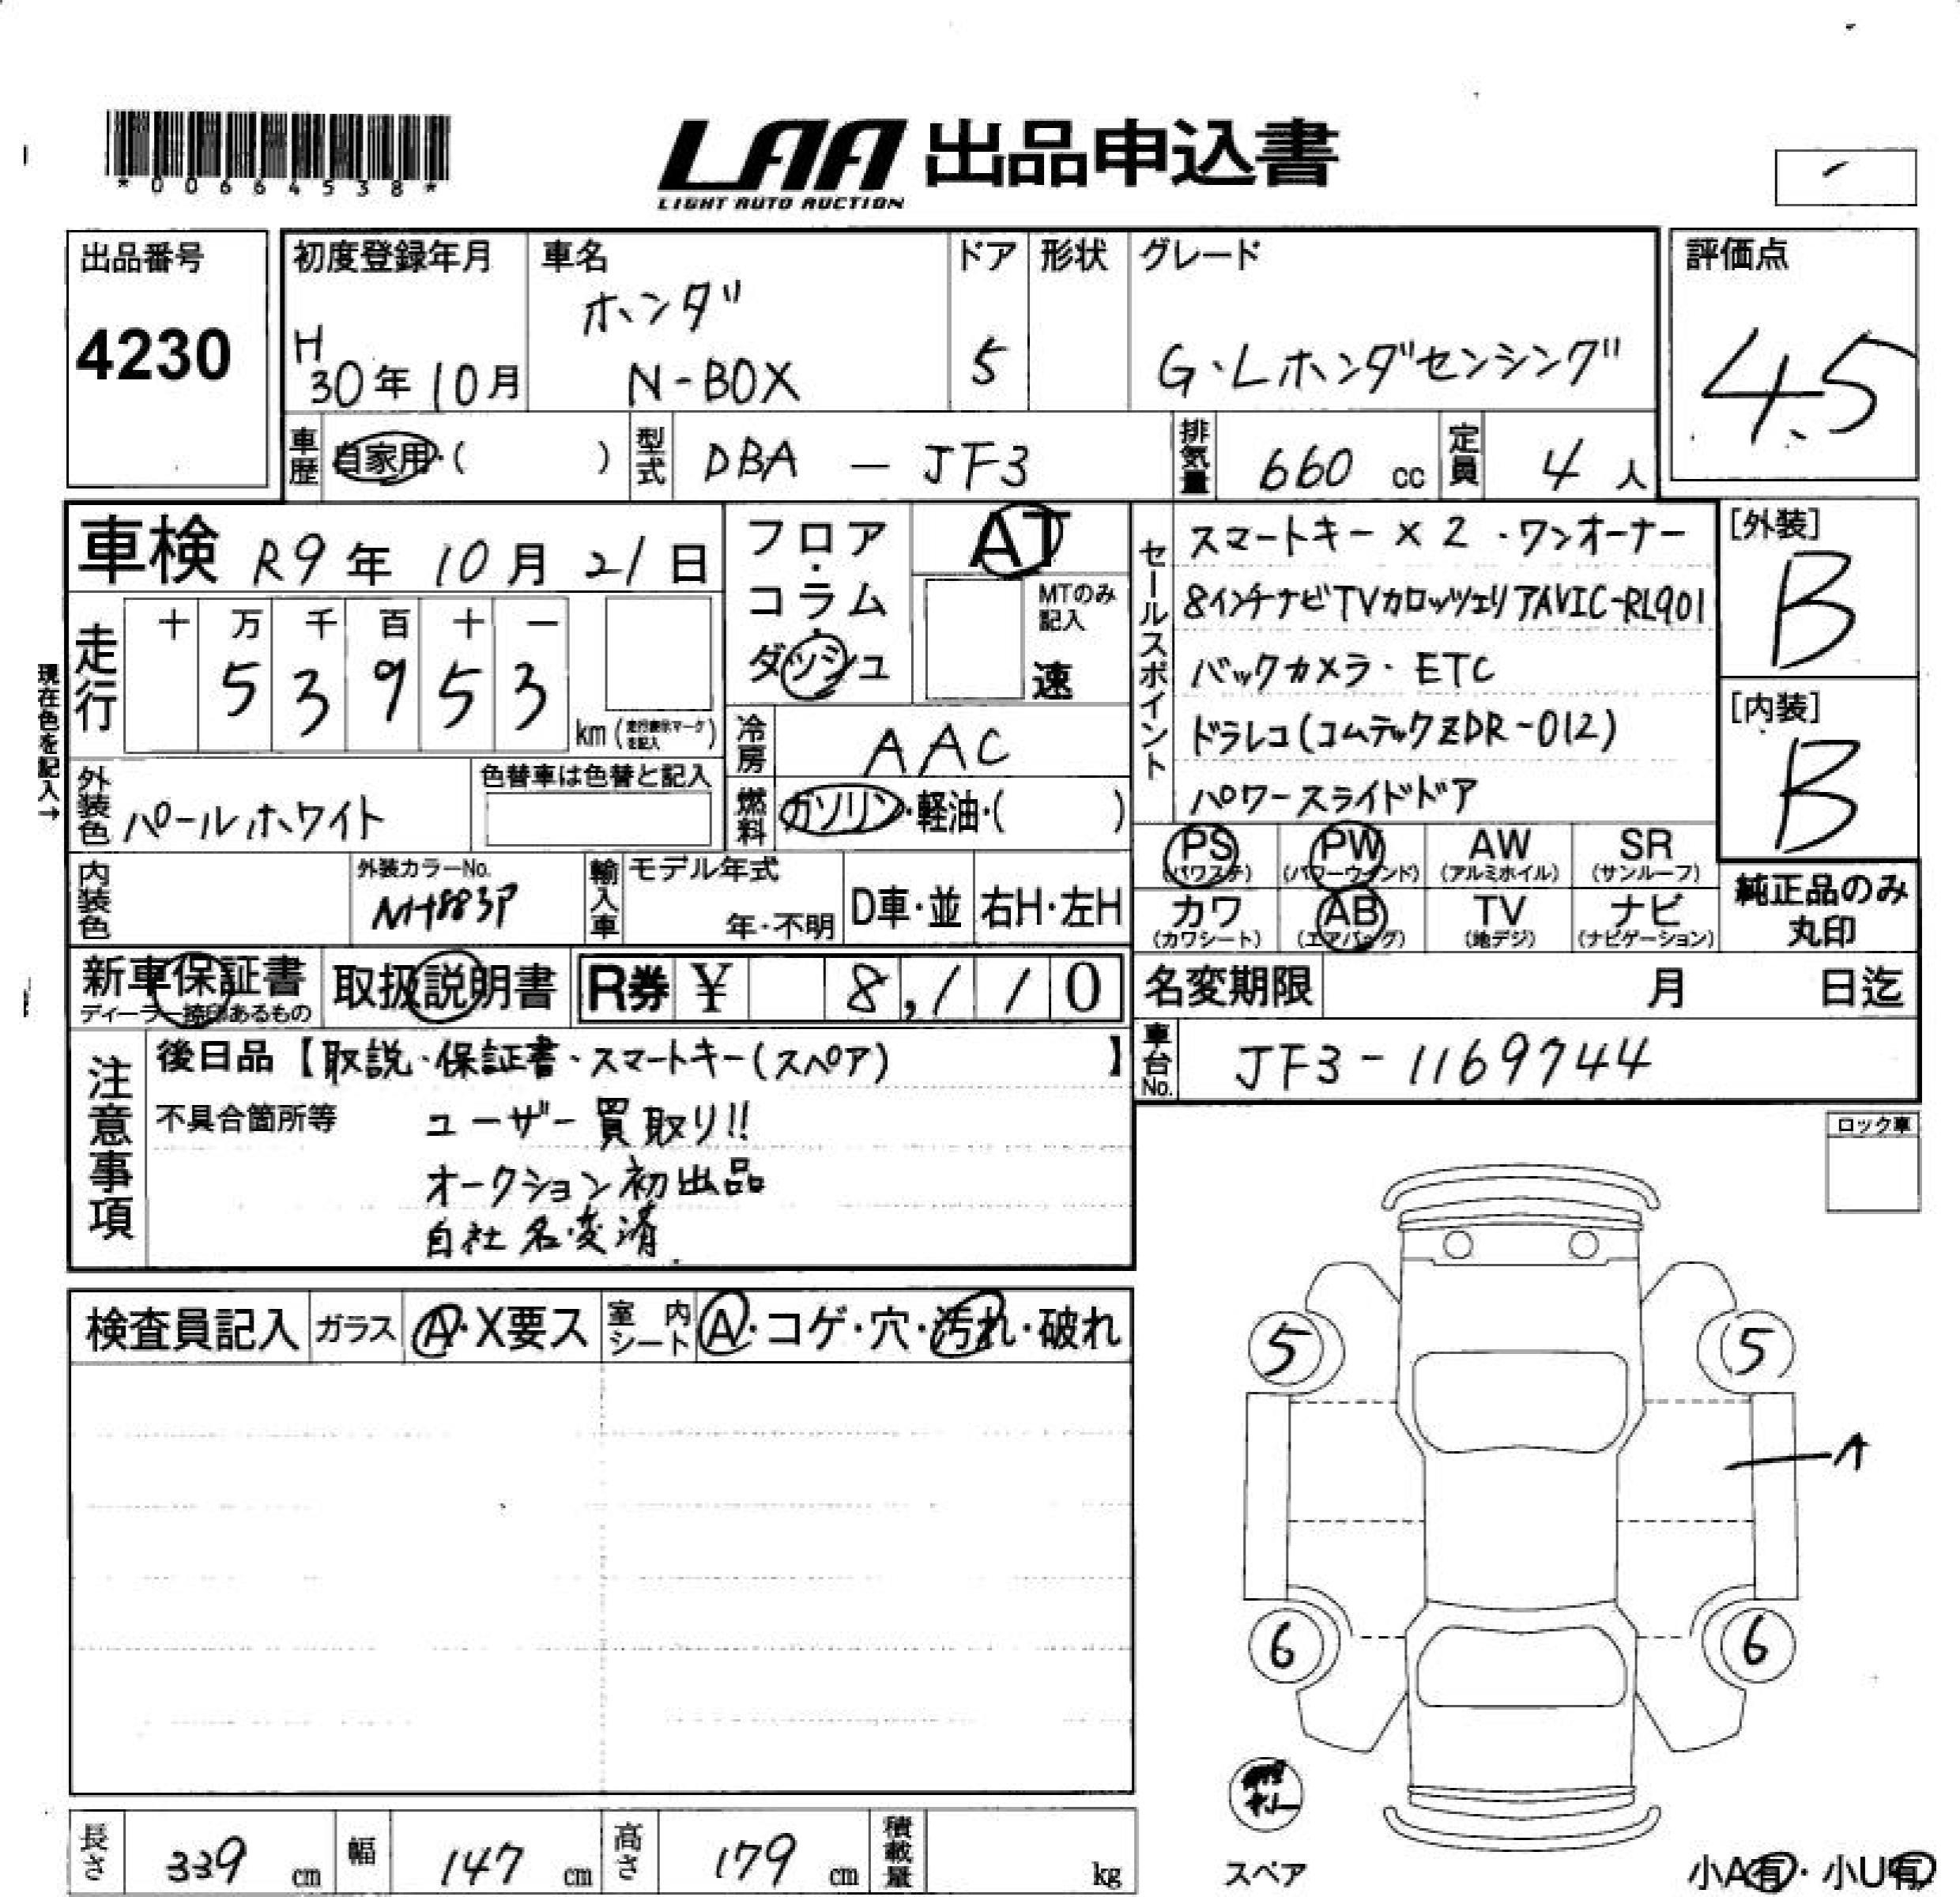 *00664538*
LAA 出品申込書
LIGHT AUTO AUCTION
出品番号
4230
初度登録年月
H
30年10月
車名
ホンダ
N-BOX
ドア
5
形状
グレード
G・Lホンダセンシング
評価点
4.5
車歴
自家用・( )
型式
DBA - JF3
排気量
660 cc
定員
4 人
車検 R9年 10月 21日
フロア・コラム・ダッシュ
AT
MTのみ記入
速
セールスポイント
スマートキー×2・ワンオーナー
8インチナビTVカロッツェリアAVIC-RL901
バックカメラ・ETC
ドラレコ(コムテックZDR-012)
パワースライドドア
[外装]
B
[内装]
B
現在色を記入→
走行
十 万 千 百 十 一
5 3 9 5 3
km(走行表示マークを記入)
冷房
AAC
外装色
パールホワイト
色替車は色替と記入
燃料
ガソリン・軽油・( )
PS
(パワステ)
PW
(パワーウインド)
AW
(アルミホイル)
SR
(サンルーフ)
カワ
(カワシート)
AB
(エアバッグ)
TV
(地デジ)
ナビ
(ナビゲーション)
純正品のみ
丸印
内装色
外装カラーNo.
NH883P
輸入車
モデル年式
年・不明
D車・並
右H・左H
新車保証書
ディーラー捺印あるもの
取扱説明書
R券 ¥ 8,110
名変期限 月 日迄
車台No.
JF3-1169744
注意事項
後日品【取説・保証書・スマートキー(スペア) 】
不具合箇所等
ユーザー買取り!!
オークション初出品
自社名変済
ロック車
検査員記入
ガラス
A・X要ス
室内シート
A・コゲ・穴・汚れ・破れ
5
5
A
6
6
スペア
小A有・小U有
長さ
339 cm
幅
147 cm
高さ
179 cm
積載量
kg